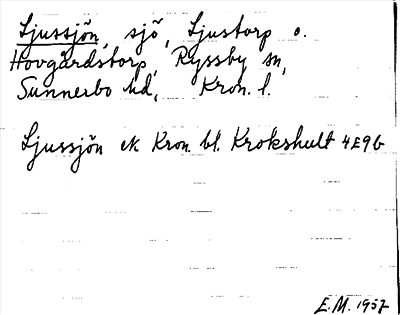 Ljussjön, sjö, Ljustorp o.
Hovgårdstorp, Ryssby sn,
Sunnerbo hd, Kron. l.
Ljussjön ek Kron. bl. Krokshult 4E9b
E.M. 1957